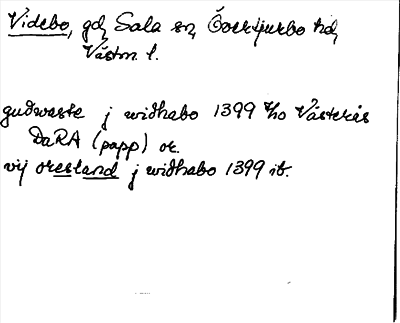 Videbo, gd, Sala sn, Överjurbo hd,
Västm. l.
gudwaste j widhabo 1399 Västerås
DaRA (papp) or.
vij oresland j widhabo 1399 ib.